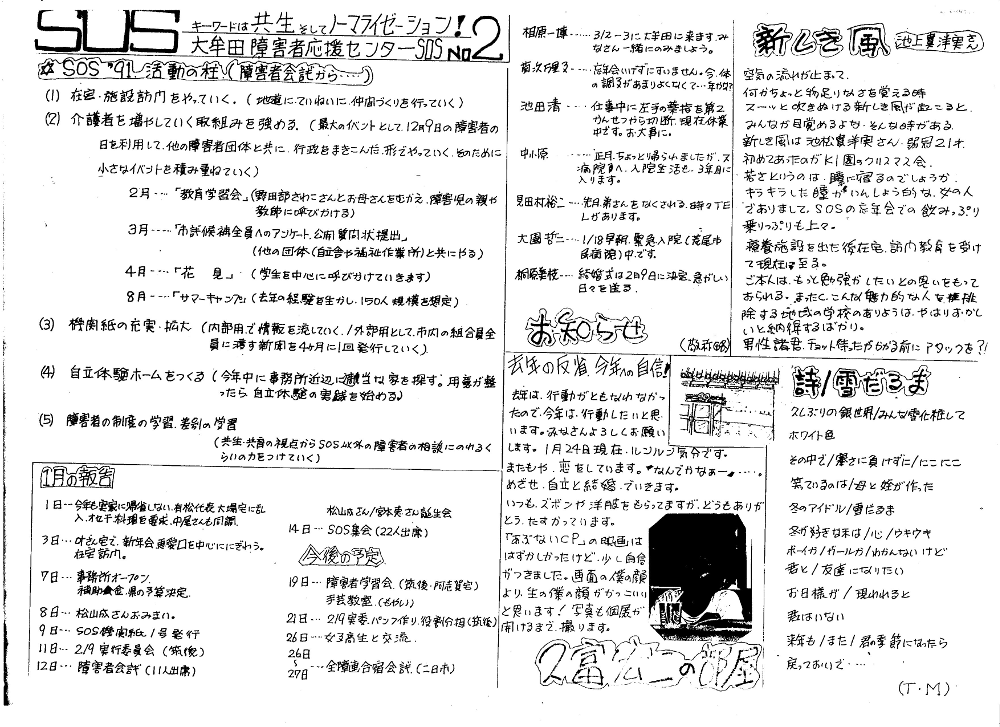 SOS
キーワードは共生そしてノーマライゼーション!
大牟田障害者応援センターSOS No2
☆SOS '91 活動の柱(障害者会議から……)
(1) 在宅・施設訪問をやっていく.(地道に.ていねいに.仲間づくりを行っていく)
(2) 介護者を増やしていく取組みを強める.(最大のイベントとして,12月9日の障害者の
日を利用して,他の障害者団体と共に,行政をまきこんだ.形でやっていく,そのために
小さなイベントを積み重ねていく)
2月…「教育学習会」(さわこさんとお母さんをむかえ,障害児の親や
教師に呼びかける)
3月…「市議候補全員へのアンケート.公開質問状提出」
(他の団体(自立会や福祉作業所)と共にやる)
4月…「花 見」(学生を中心に呼びかけていきます)
8月…「サマーキャンプた」(去年の経験を生かし,150人規模を想定)
(3) 機関紙の充実・拡大(内部用で情報を流していく./外部用として,市内の組合員全
員に渡す新聞を4ヶ月に1回発行していく.)
(4) 自立体験ホームをつくる(今年中に事務所近辺に適当な家を探す.用意が整
ったら,自立体験の実践を始める)
(5) 障害者の制度の学習,差別の学習
(共生・共育の視点からSOS以外の障害者の相談にのれるく
らいの力をつけていく)
1月の報告
1日…今年も実家に帰省しない有松代表大場宅に乱
入.オセチ料理を要求.中尾さんも同調.
3日…さん宅で,新年会.を中心ににぎわう。
在宅訪問.
7日…事務所オープン.
補助金.県の予算決定.
8日…松山成さんおみまい。
9日…SOS機関紙1号発行
11日…2/9実行委員会(筑後)
12日…障害者会議(11人出席)
松山成さん/さん誕生会
14日…SOS集会(22人出席)
今後の予定
19日…障害者学習会.(筑後・阿志賀宅)
手芸教室.(もやい)
21日…2/9実委.パンフ作り,役割分担(筑後)
26日…女子高生と交流.
26日
~
27日…全障連合宿会議(二日市)
相原一博…3/2~3に大牟田に来ます,み
なさん一緒にのみましょう。
菊次…忘年会いけずにすいません。今,体
の調子があまりよくなくて…年かな?
池田清…仕事中に左手の薬指を第2
かんせつから切断.現在休業
中です。お大事に。
中小原…正月,ちょっと帰られましたが,又
病院へ,入院生活も,3年目に
入ります。
見田村裕二…先月弟さんをなくされる,時々TE
Lがあります。
大園哲二…1/18早朝,緊急入院(荒尾市
民病院)中です。
相原…結婚式は2月9日に決定.忙しい
日々を送る.
お知らせ
(敬称略)
去年の反省,今年への自信!
去年は,行動がともなわなかっ
たので,今年は,行動したいと思
います。みなさんよろしくお願い
します。1月24日現在・ルンルン気分です。
またもや,恋をしています。"なんでかなぁー"……。
めざせ,自立と結婚,でいきます。
いつも,ズボンや洋服をもらってますが,どうもありが
とう,たすかっています。
「あぶないCP」の映画は
はずかしかったけど,少し自信
がつきました。画面の僕の顔
より,生の僕の顔がかっこいい
と思います!写真も個展が
開けるまで,撮ります。
久富宏二の部屋
新しき風
池上真津実さん
空気の流れが止まって,
何かちょっと物足りなさを覚える時
スーッと吹きぬける新しき風が起こると,
みんなが目覚めるよな,そんな時がある.
新しき風は池松真津実さん。昭和21才。
初めてあったのがK1園のクリスマス会.
若さというのは,瞳に宿るのでしょうか.
キラキラした瞳がいんしょう的な,女の人
でありまして,SOSの忘年会での飲みっぷり
乗りっぷりも上々.
療養施設を出た後在宅,訪問教育を受け
て現在に至る。
ご本人は,もっと勉強がしたいとの思いをもって
おられる.まったく,こんな魅力的な人を排
除する地域の学校のありようは,やはりおかし
いと納得するばかり。
男性諸君,チョット待った,かかる前にアタックを?!
詩/雪だるま
久しぶりの銀世界/みんな雪化粧して
ホワイト色
その中で/寒さに負けずに/にこにこ
笑ているのは/母と姪が作った
冬のアイドル/雪だるま
冬が好きな末は/心/ウキウキ
ボーイか/ガールか/わかんないけど
君と/友達になりたい
お日様が/現われると
君はいない
来年も/また/君の季節になったら
戻っておいで……
(T・M)